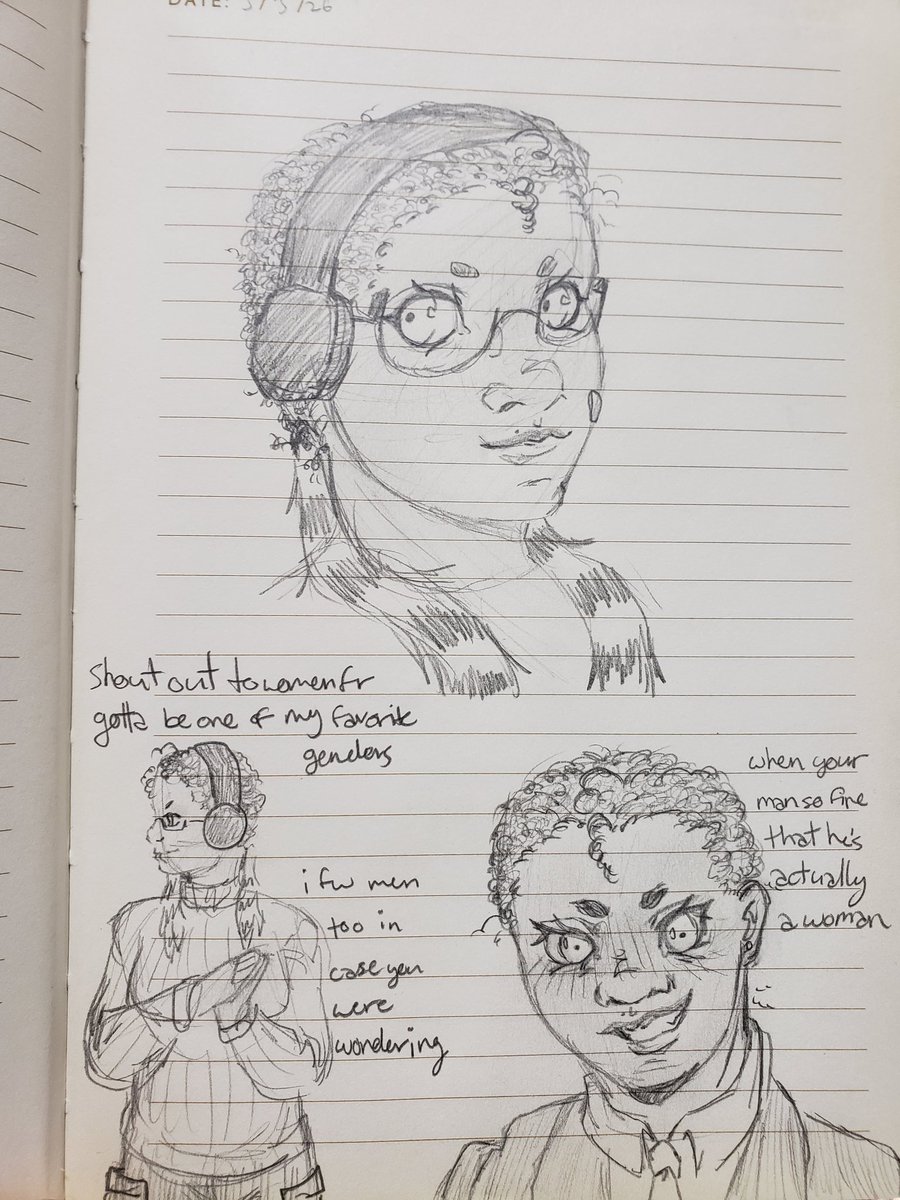 DATE: 3/3/26
Shout out to women fr
gotta be one of my favorite
genders
i fw men
too in
case you
were
wondering
when your
man so fine
that he's
actually
a woman